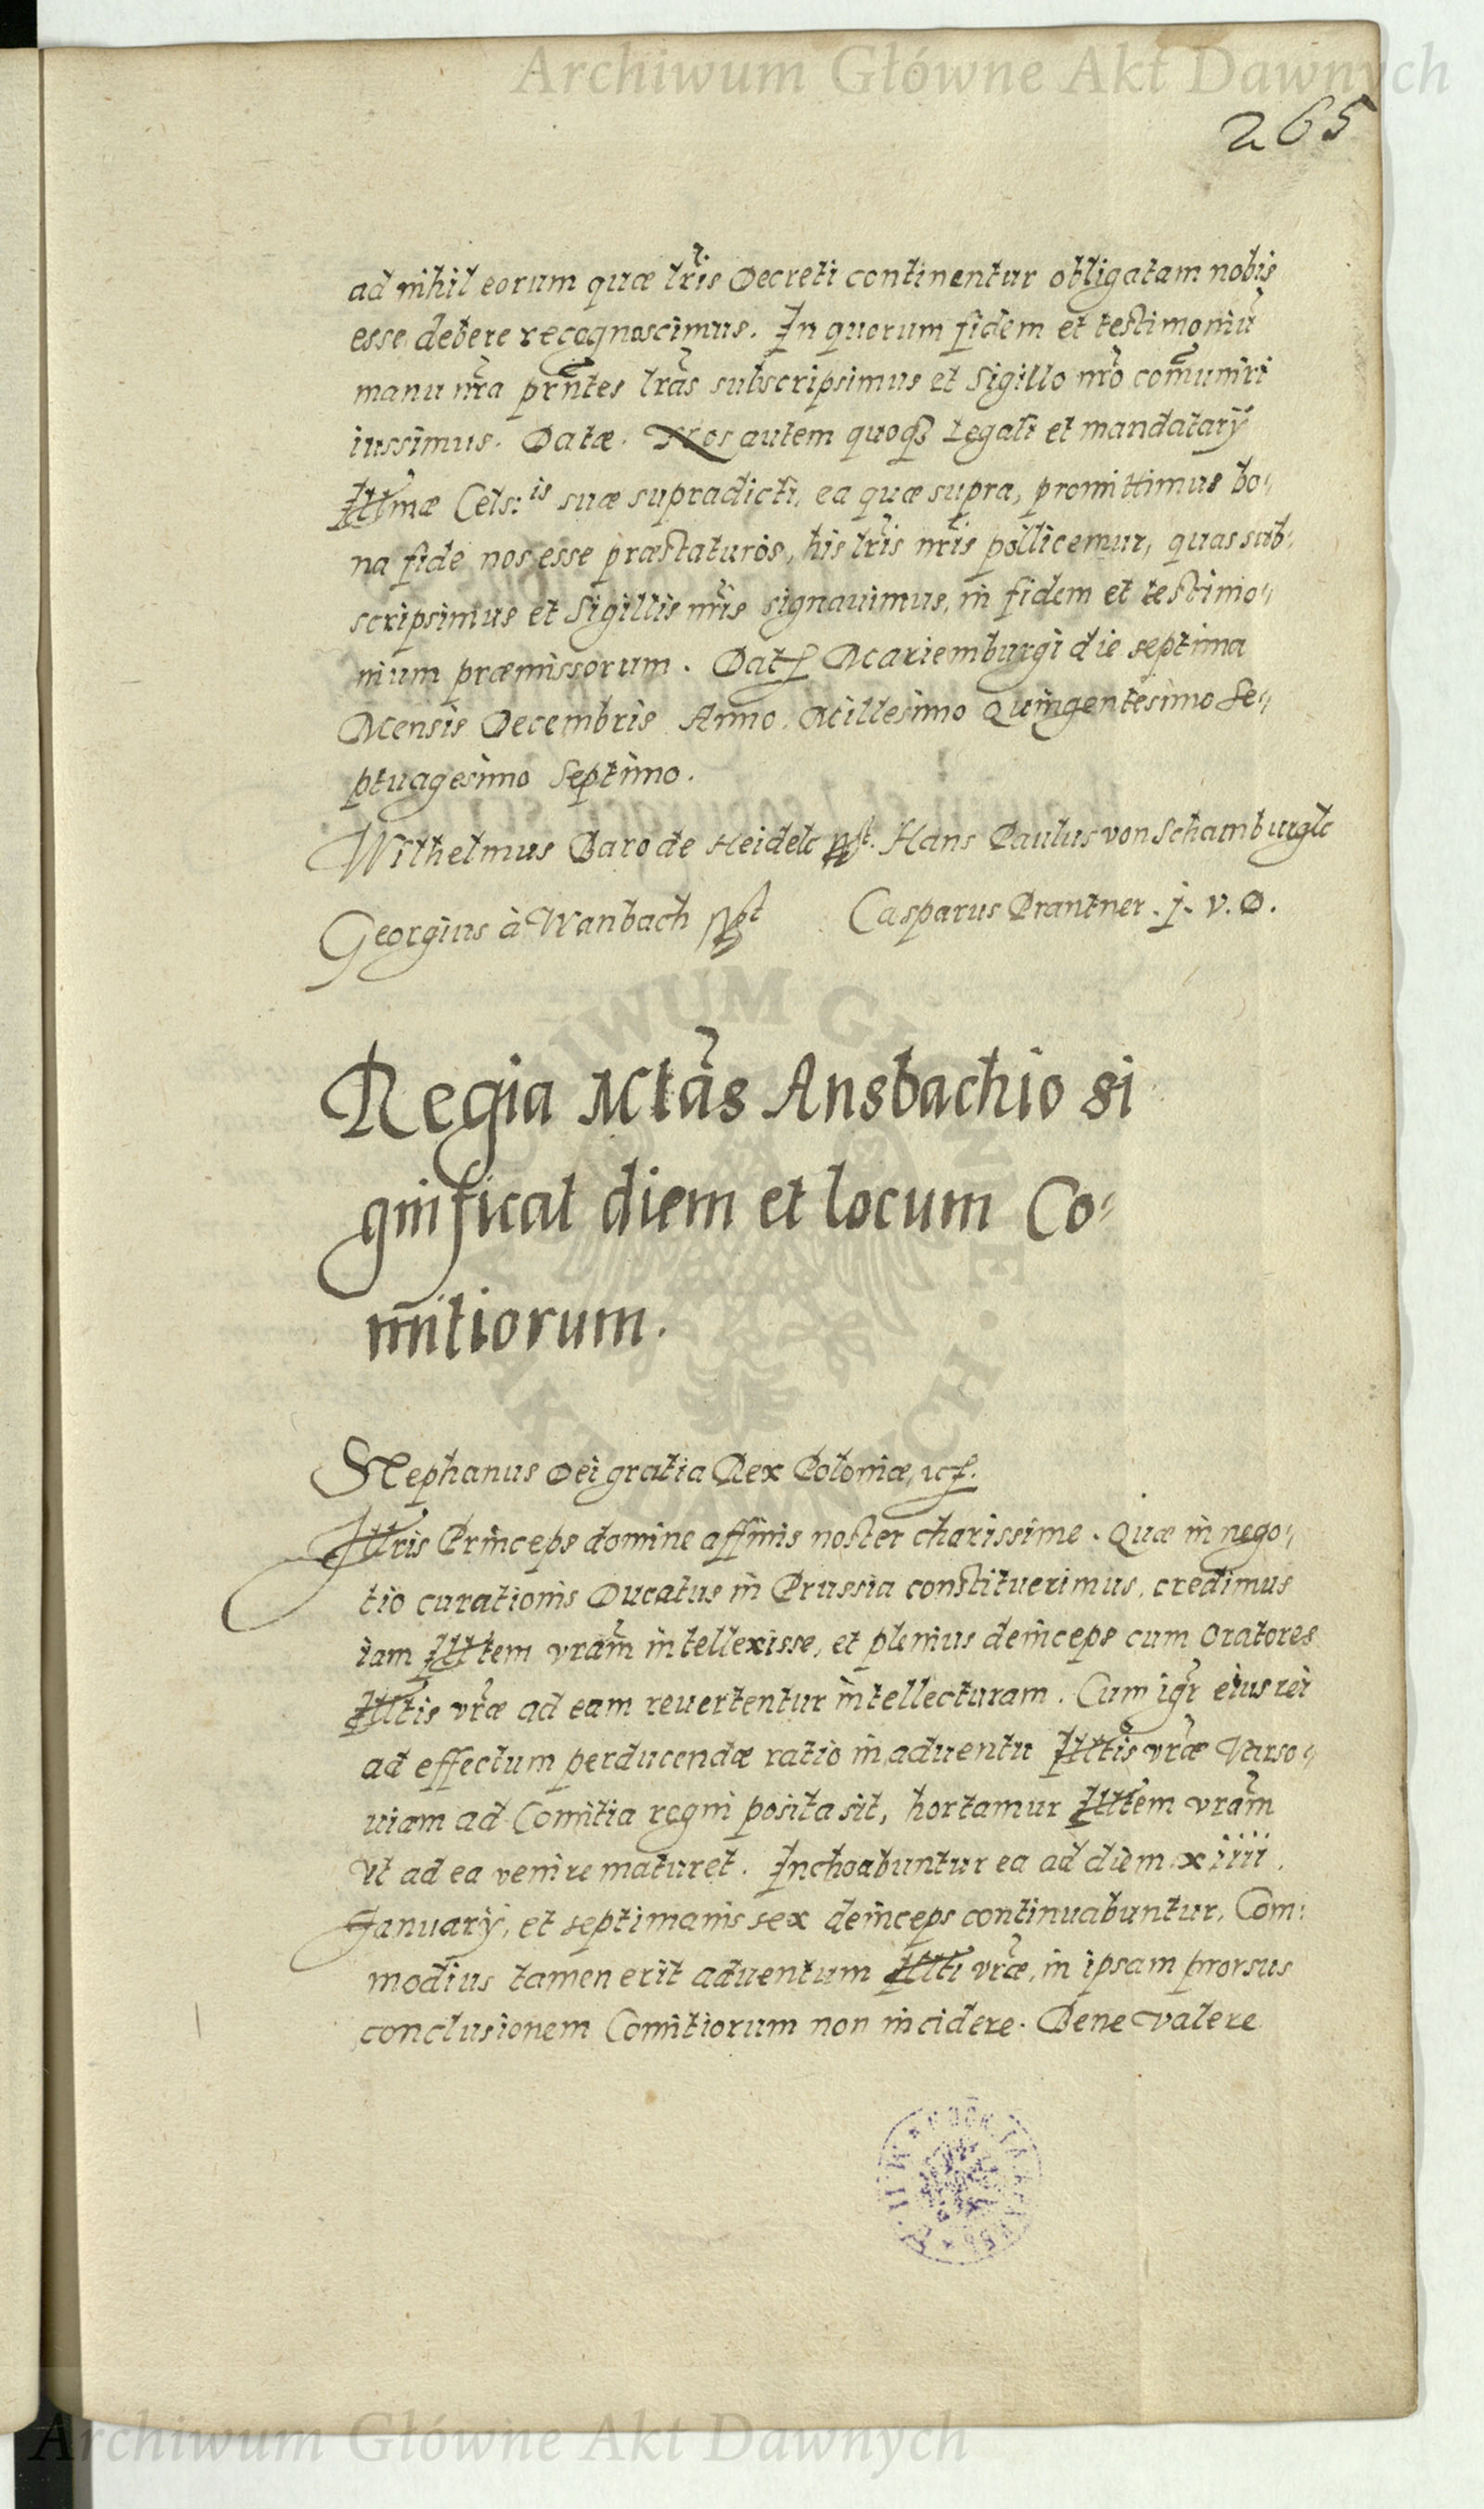 Archiwum Główne Akt Dawnych
265
ad nihil eorum quæ lr̃is Decreti continentur obligatam nobis
esse debere recognoscimus. In quorum fidem et testimoniũ
manu nr̃a prñtes lr̃as subscripsimus et Sigillo nr̃o com̃uniri
iussimus. Datæ. Nos autem quoqȝ Legati et mandatarÿ
Illmæ Cels:is suæ supradicti, ea quæ supra, promittimus bo⸗
na fide nos esse præstaturos, his lr̃is nr̃is pollicemur, quas sub⸗
scripsimus et Sigillis nr̃is signauimus, in fidem et testimo⸗
nium præmissorum. Dat. Mariemburgi die septima
Mensis Decembris Anno. Millesimo Quingentesimo Se⸗
ptuagesimo Septimo.
Wilhelmus Baro de Heidek sst. Hans Paulus von Schamburgk
Georgius à Wanbach sst Casparus Prantner. j. v. D.
Regia Mtãs Ansbachio si
gnificat diem et locum Co⸗
mitiorum.
Stephanus Dei gratia Rex Poloniæ, ⁊c.
Illris Princeps domine affinis noster charissime. Quæ in nego⸗
tio curationis Ducatus in Prussia constituerimus, credimus
iam Illtem vr̃am intellexisse, et plenius deinceps cum Oratores
Illtis vr̃æ ad eam reuertentur intellecturam. Cum igr̃ eius rei
ad effectum perducendæ ratio in aduentu Illtis vr̃æ Varso⸗
uiam ad Comitia regni posita sit, hortamur Illtem vr̃am
vt ad ea venire maturet. Inchoabuntur ea ad diem xiiii.
Januarÿ, et septimanis sex deinceps continuabuntur. Com:
modius tamen erit aduentum Illti vr̃æ, in ipsam prorsus
conclusionem Comitiorum non incidere. Bene valere
Archiwum Główne Akt Dawnych